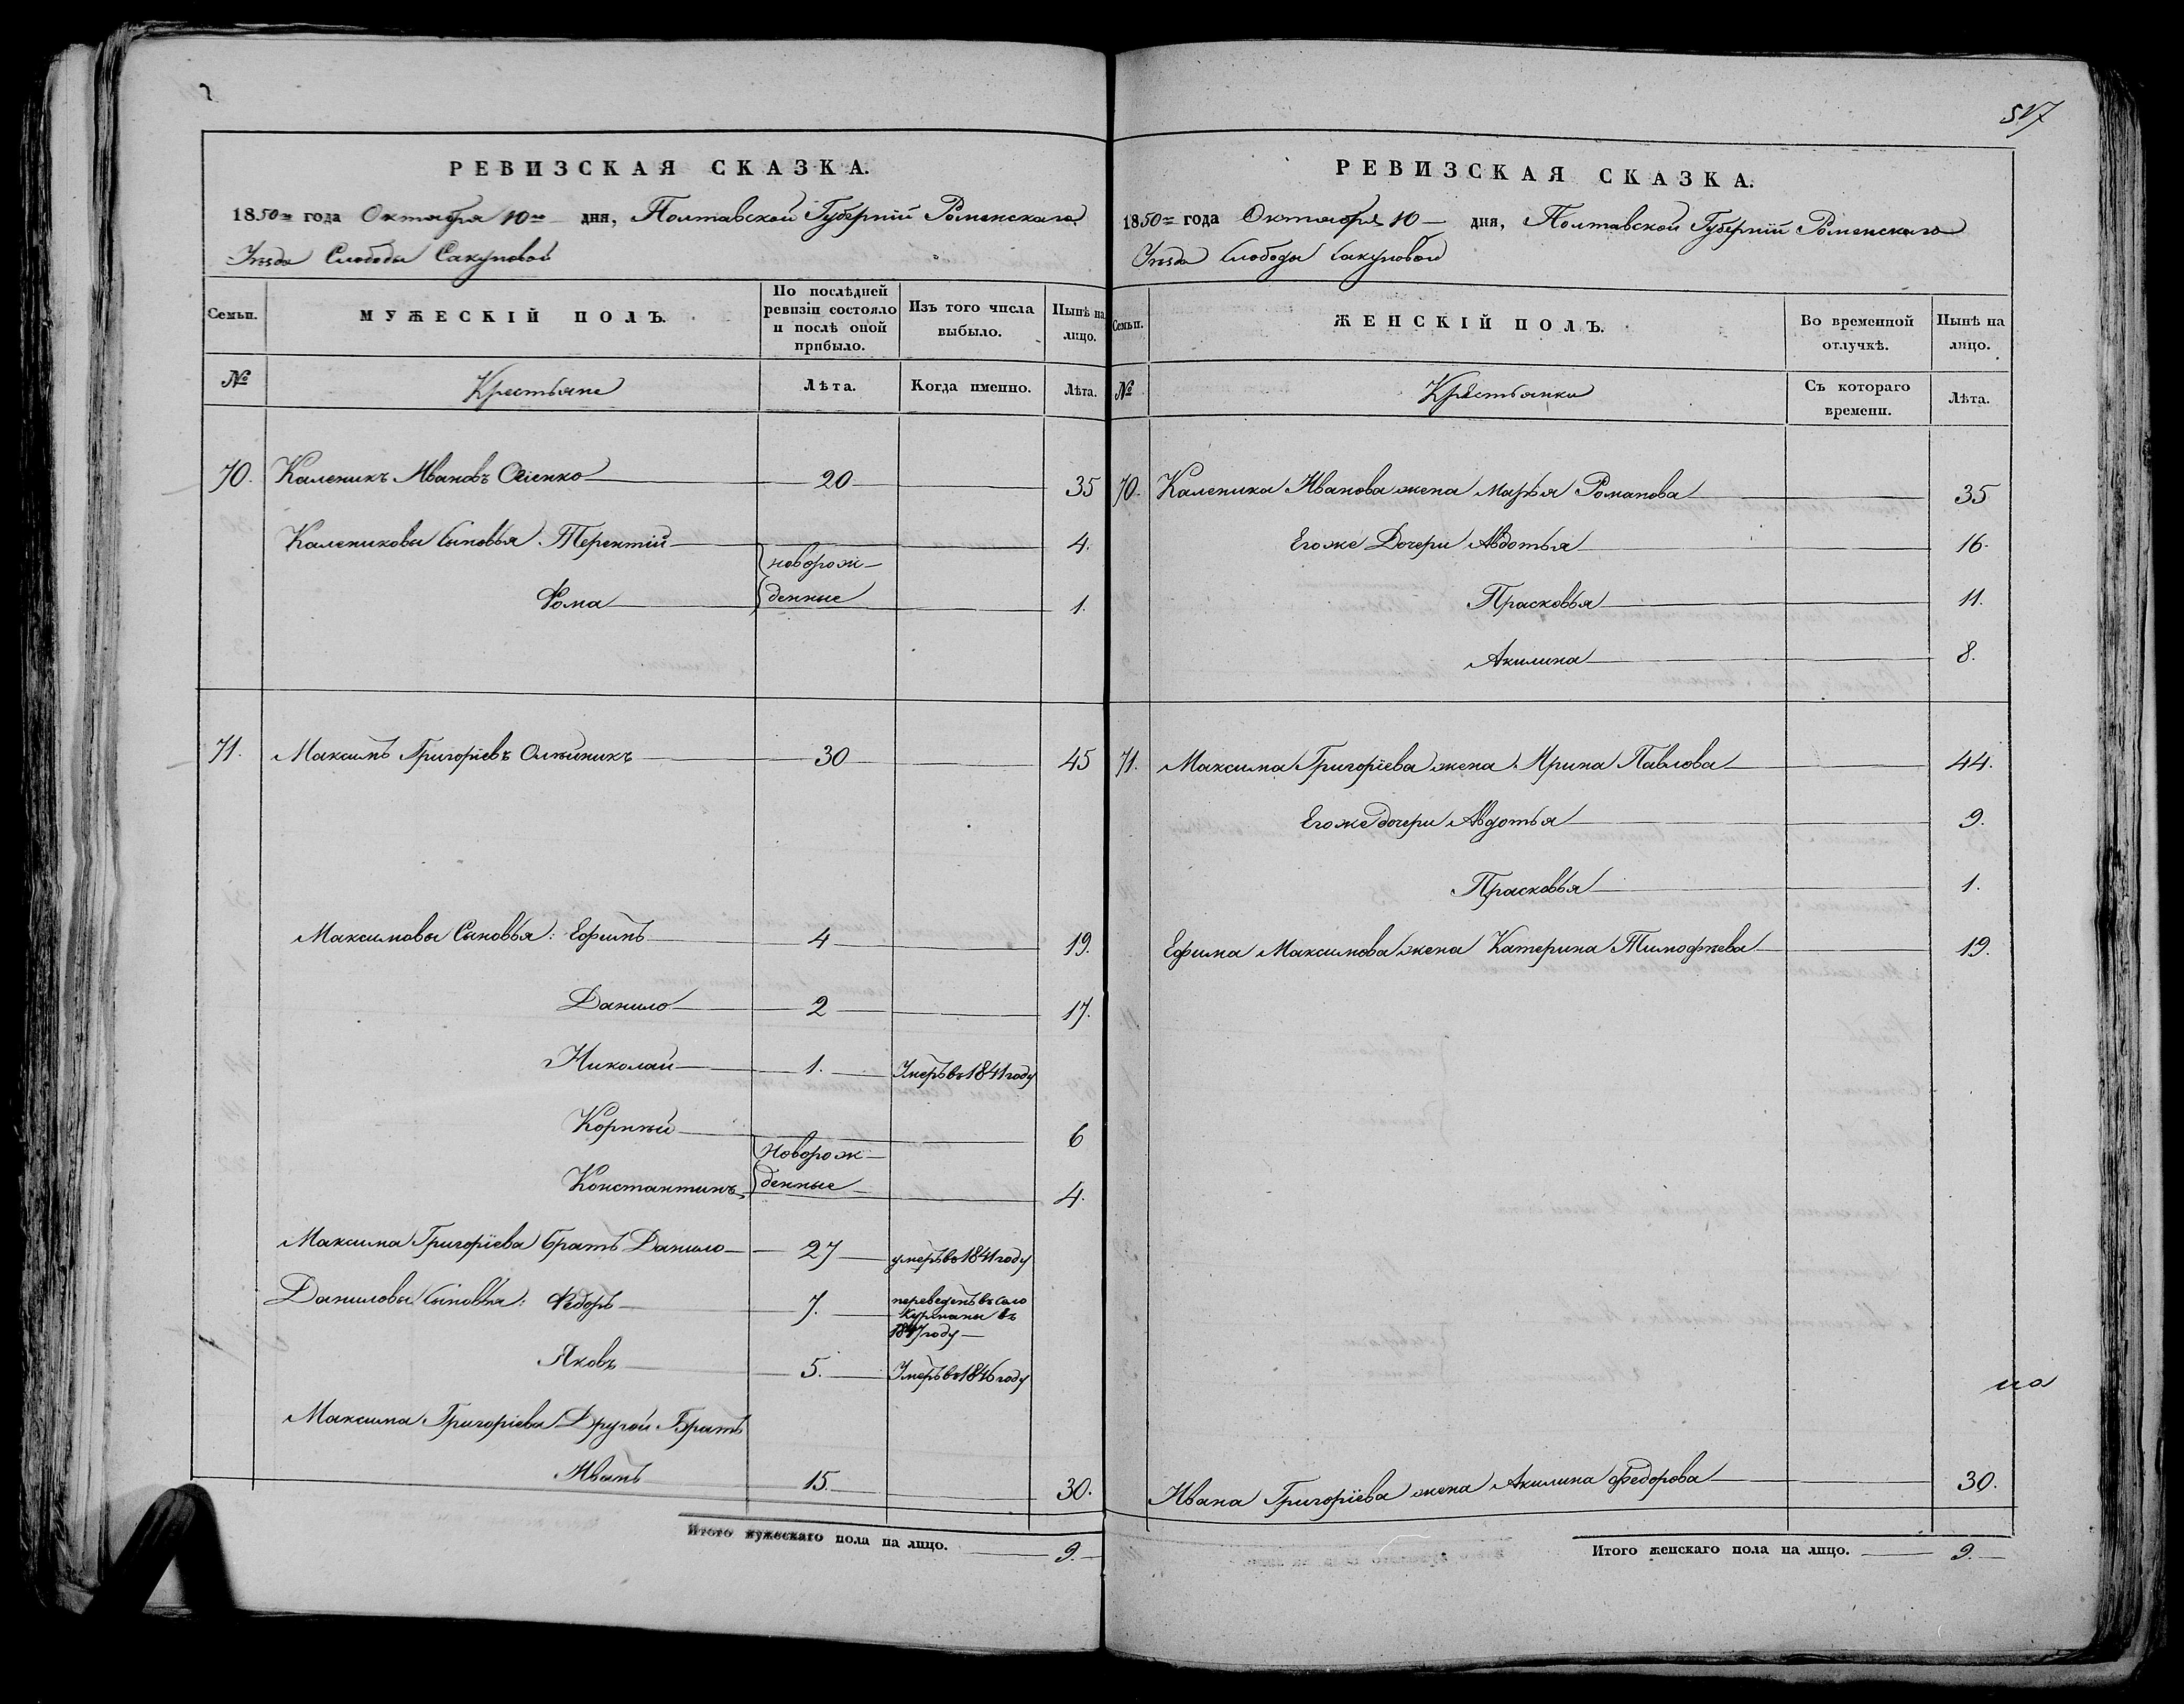 РЕВИЗСКАЯ СКАЗКА.
1850го года Октября 10го дня, Полтавской Губерніи Роменскаго
Уѣзда Слободы Сакуновой
Семьи.
МУЖЕСКІЙ ПОЛЪ.
По послѣдней ревизіи состояло и послѣ оной прибыло.
Изъ того числа выбыло.
Нынѣ на лицо.
№
Крестьяне
Лѣта.
Когда именно.
Лѣта.
70. Каленикъ Ивановъ 20 35
Калениковы Сыновья. Терентій новорож- 4.
Фома денные 1.
71. Максимъ Григоріевъ Олѣйникъ 30 45
Максимовы Сыновья: Ефимъ 4 19.
Данило 2 17.
Николай 1. Умеръ въ 1841 году
Корнѣй Новорож- 6
Константинъ денные 4.
Максима Григоріева братъ Данило 27 умеръ въ 1841 году
Даниловы Сыновья: Федоръ 7. переведенъ въ село
въ
1847 году
Яковъ 5. Умеръ въ 1846 году
Максима Григоріева Другой Братъ
Иванъ 15. 30.
Итого мужескаго пола на лицо. 9.
517
РЕВИЗСКАЯ СКАЗКА.
1850го года Октября 10 дня, Полтавской Губерніи Роменскаго
Уѣзда Слободы Сакуновой
Семьи.
ЖЕНСКІЙ ПОЛЪ.
Во временной отлучкѣ.
Нынѣ на лицо.
№
Крестьянки
Съ котораго времени.
Лѣта.
70. Каленика Иванова жена Марья Романова 35
Егоже Дочери Авдотья 16.
Прасковья 11.
Акилина 8.
71. Максима Григоріева жена Ирина Павлова 44.
Егоже дочери Авдотья 9.
Прасковья 1.
Ефима Максимова жена Катерина Тимофѣева 19.
на
Ивана Григоріева жена Акилина Федорова 30.
Итого женскаго пола на лицо. 9.